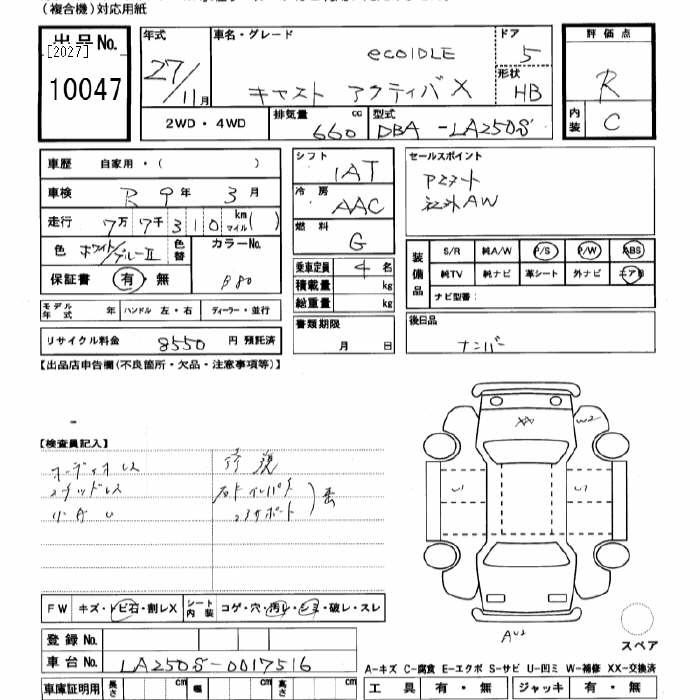 (複合機)対応用紙
出品No. [2027] 10047
年式 27/11月
車名・グレード ecoIDLE キャスト アクティバX
ドア 5
形状 HB
2WD・4WD
排気量 660 cc
型式 DBA-LA250S
評価点 R
内装 C
車歴 自家用・( )
車検 R 9年 3月
走行 7万7千310 km マイル( )
色 ホワイト/ブルーⅡ
色替
カラーNo. B80
保証書 有・無
モデル年式 年 ハンドル 左・右 ディーラー・並行
リサイクル料金 8550 円 預託済
シフト IAT
冷房 AAC
燃料 G
乗車定員 4 名
積載量 kg
総重量 kg
書類期限 月 日
セールスポイント
Pスタート
社外AW
装備品 S/R 純A/W P/S P/W ABS
純TV 純ナビ 革シート 外ナビ エアB
ナビ型番:
後日品
ナンバー
【出品店申告欄(不良箇所・欠品・注意事項等)】
【検査員記入】
オーディオレス
スタッドレス
小A U
修復
右Fインパネ
コアサポート
XX W2
U1 U1
AU2
FW キズ・トビ石・割レX シート内装 コゲ・穴・汚レ・シミ・破レ・スレ
登録No.
車台No. LA250S-0017516
車庫証明用 長さ cm 幅 cm 高さ cm
スペア
A-キズ C-腐食 E-エクボ S-サビ U-凹ミ W-補修 XX-交換済
工具 有・無 ジャッキ 有・無